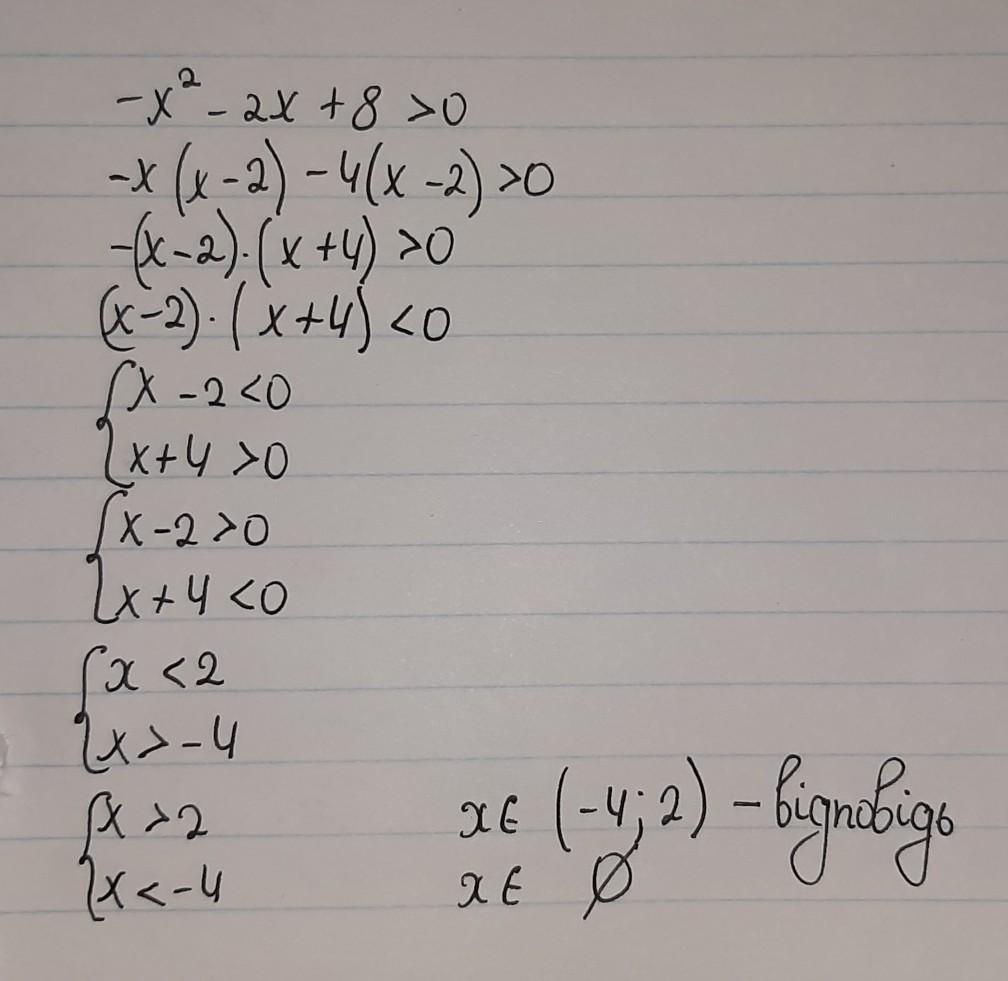 -x² - 2x + 8 > 0
-x (x - 2) - 4(x - 2) > 0
-(x - 2)·(x + 4) > 0
(x - 2)·(x + 4) < 0
{x - 2 < 0
{x + 4 > 0
{x - 2 > 0
{x + 4 < 0
{x < 2
{x > -4
{x > 2 x ∈ (-4; 2) - відповідь
{x < -4 x ∈ ∅